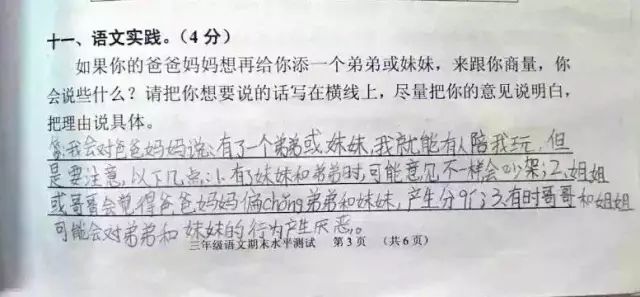 十一、语文实践。（4 分）
如果你的爸爸妈妈想再给你添一个弟弟或妹妹，来跟你商量，你
会说些什么？请把你想要说的话写在横线上，尽量把你的意见说明白，
把理由说具体。
我会对爸爸妈妈说：有了一个弟弟或妹妹，我就能有人陪我玩，但
是要注意，以下几点：1.有妹妹和弟弟时，可能意见不一样会吵架；2、姐姐
或哥哥会觉得爸爸妈妈偏chǒng弟弟和妹妹，产生分歧；3、有时哥哥和姐姐
可能会对弟弟和妹妹的行为产生厌恶。
三年级语文期末水平测试 第 3 页 （共 6 页）